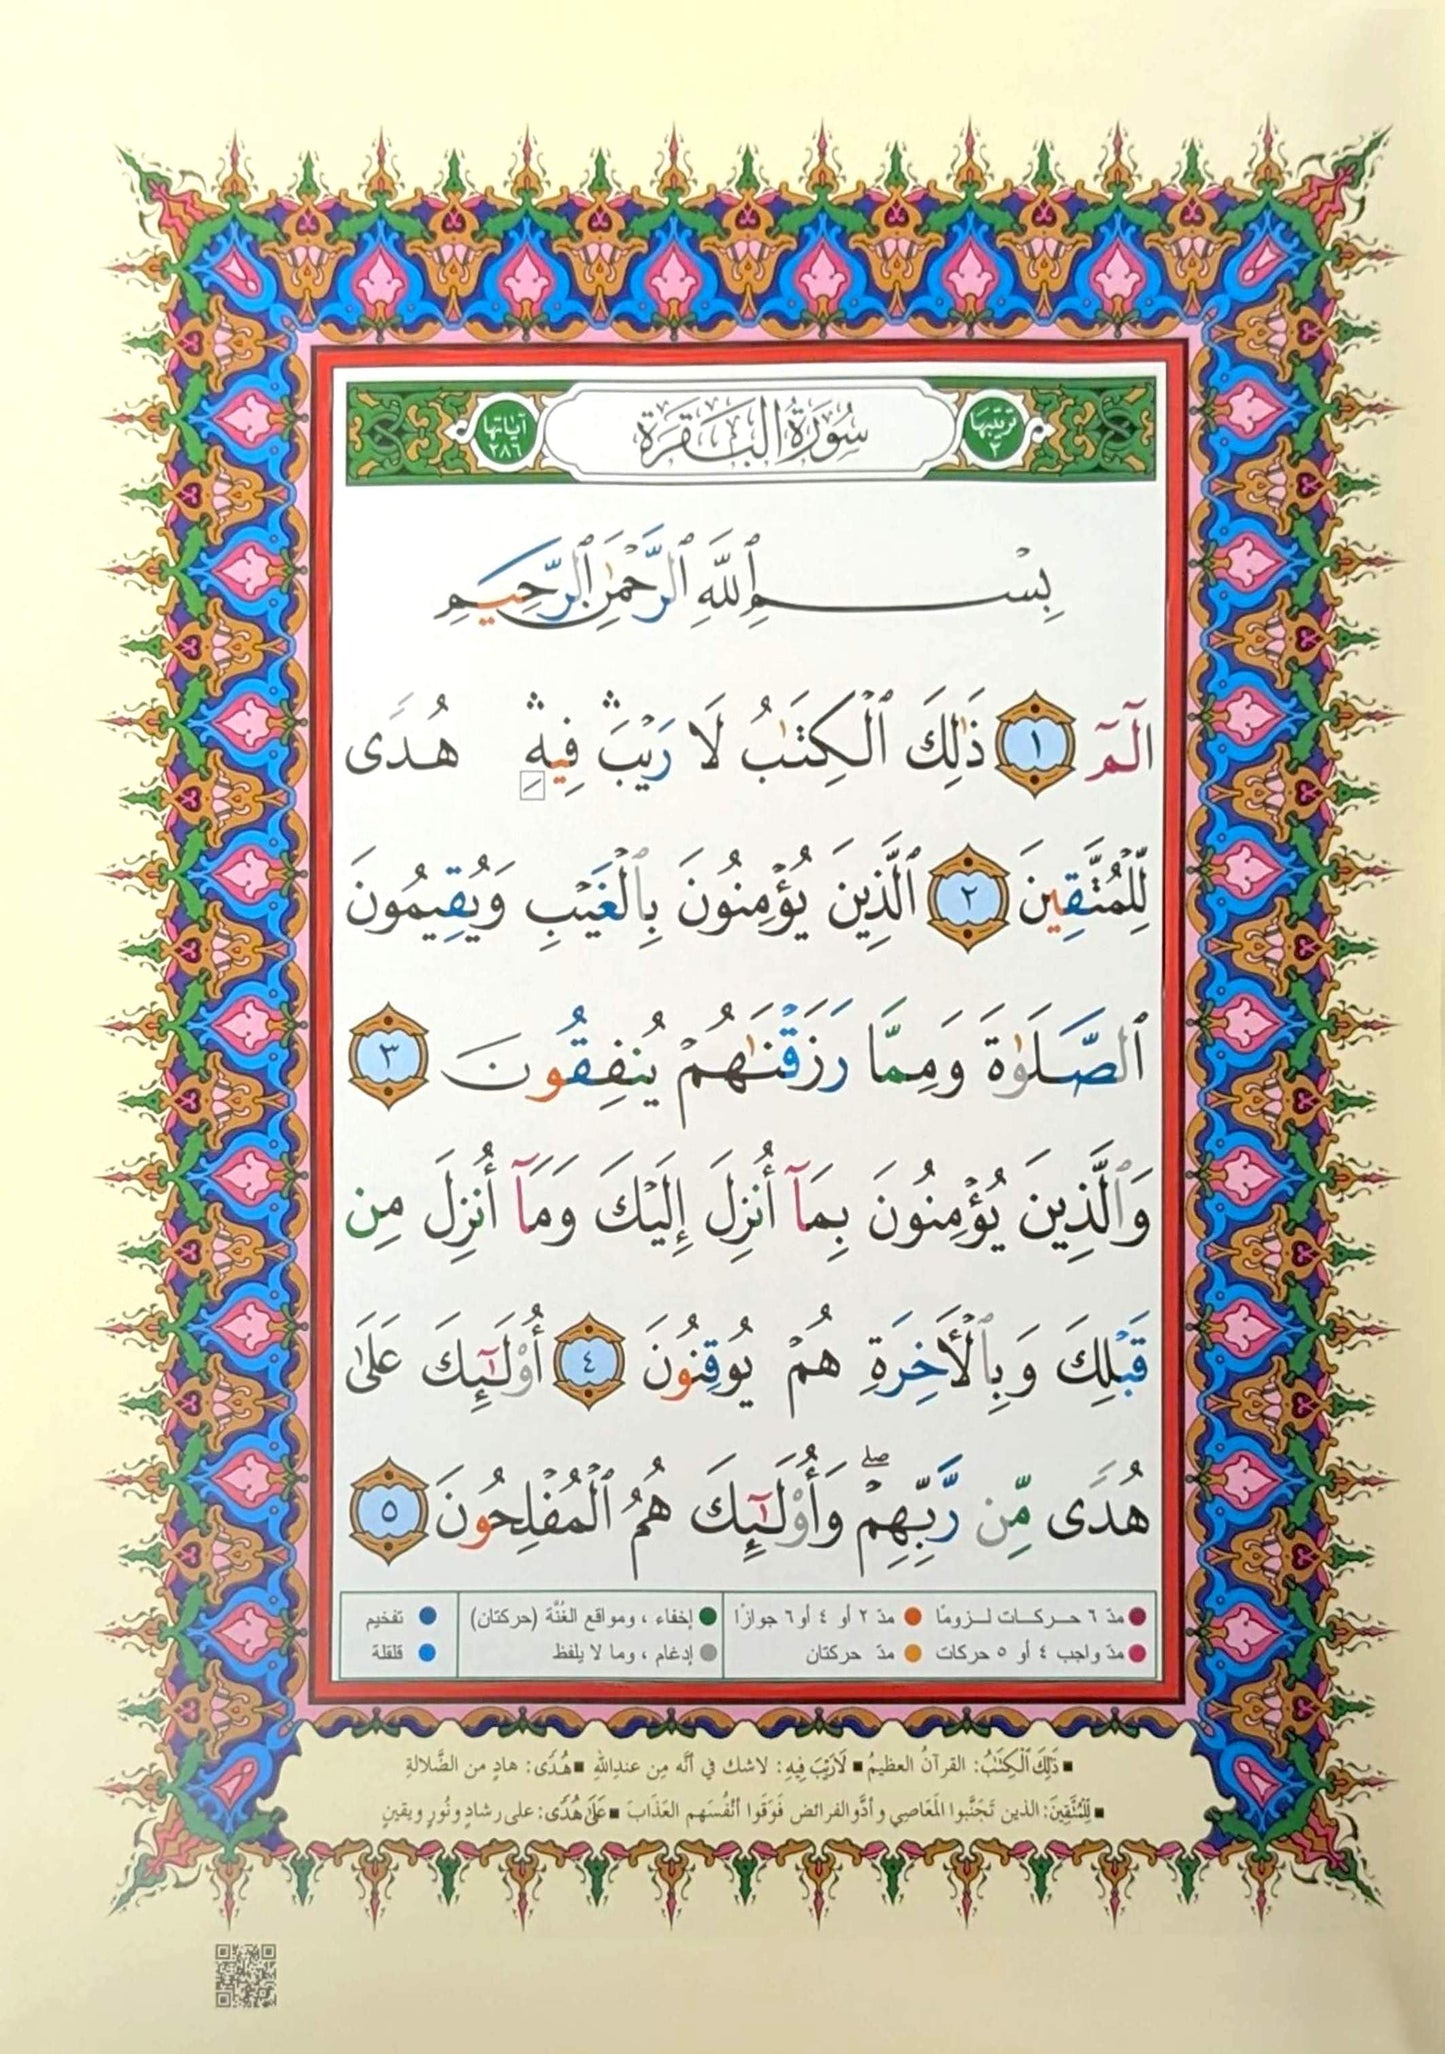 ترتيبها ٢ سُورَةُ الْبَقَرَةِ آيَاتها ٢٨٦
بِسْمِ ٱللَّهِ ٱلرَّحْمَٰنِ ٱلرَّحِيمِ
الٓمٓ ١ ذَٰلِكَ ٱلْكِتَٰبُ لَا رَيْبَ ۛ فِيهِ ۛ هُدًى
لِّلْمُتَّقِينَ ٢ ٱلَّذِينَ يُؤْمِنُونَ بِٱلْغَيْبِ وَيُقِيمُونَ
ٱلصَّلَوٰةَ وَمِمَّا رَزَقْنَٰهُمْ يُنفِقُونَ ٣
وَٱلَّذِينَ يُؤْمِنُونَ بِمَآ أُنزِلَ إِلَيْكَ وَمَآ أُنزِلَ مِن
قَبْلِكَ وَبِٱلْأَخِرَةِ هُمْ يُوقِنُونَ ٤ أُو۟لَٰٓئِكَ عَلَىٰ
هُدًى مِّن رَّبِّهِمْ ۖ وَأُو۟لَٰٓئِكَ هُمُ ٱلْمُفْلِحُونَ ٥
مدّ ٦ حركات لزومًا مدّ ٢ أو ٤ أو ٦ جوازًا إخفاء ، ومواقع الغُنَّة (حركتان) تفخيم
مدّ واجب ٤ أو ٥ حركات مدّ حركتان إدغام ، وما لا يلفظ قلقلة
■ ذَٰلِكَ ٱلْكِتَٰبُ: القرآنُ العظيمُ ■ لَارَيْبَ فِيهِ: لاشك في أنَّه مِن عندِاللهِ ■ هُدًى: هادٍ من الضَّلالةِ
■ لِلْمُتَّقِينَ: الذين تَجَنَّبوا المَعَاصِي وأدَّوا الفرائض فَوَقَوا أنْفُسَهم العَذَابَ ■ عَلَىٰ هُدًى: على رشادٍ ونُورٍ ويقينٍ